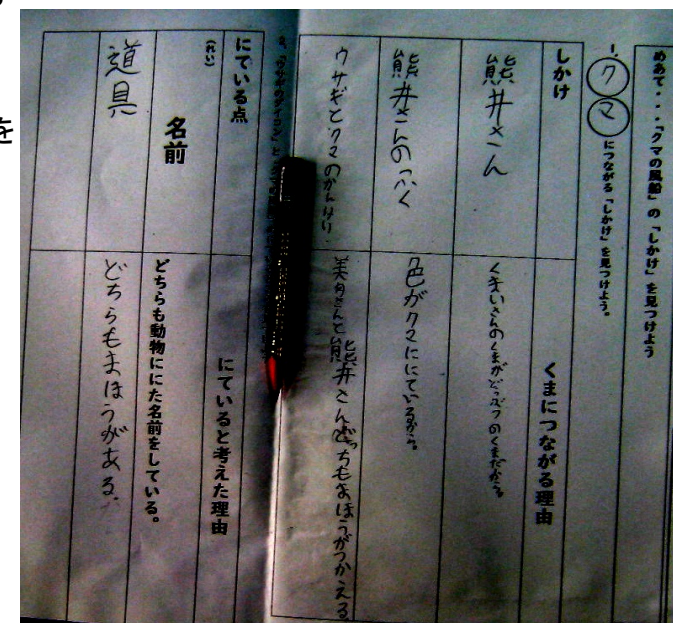 めあて・・・「クマの風船」の「しかけ」を見つけよう
1.クマにつながる「しかけ」を見つけよう。
しかけ
くまにつながる理由
熊井さん
くまいさんのくまがどうぶつのくまだから。
熊井さんのふく
色がクマににているから。
ウサギとクマのかんけい
美月さんと熊井さんどっちもまほうがつかえる
にている点
にていると考えた理由
(れい)
名前
どちらも動物ににた名前をしている。
道具
どちらもまほうがある。
を